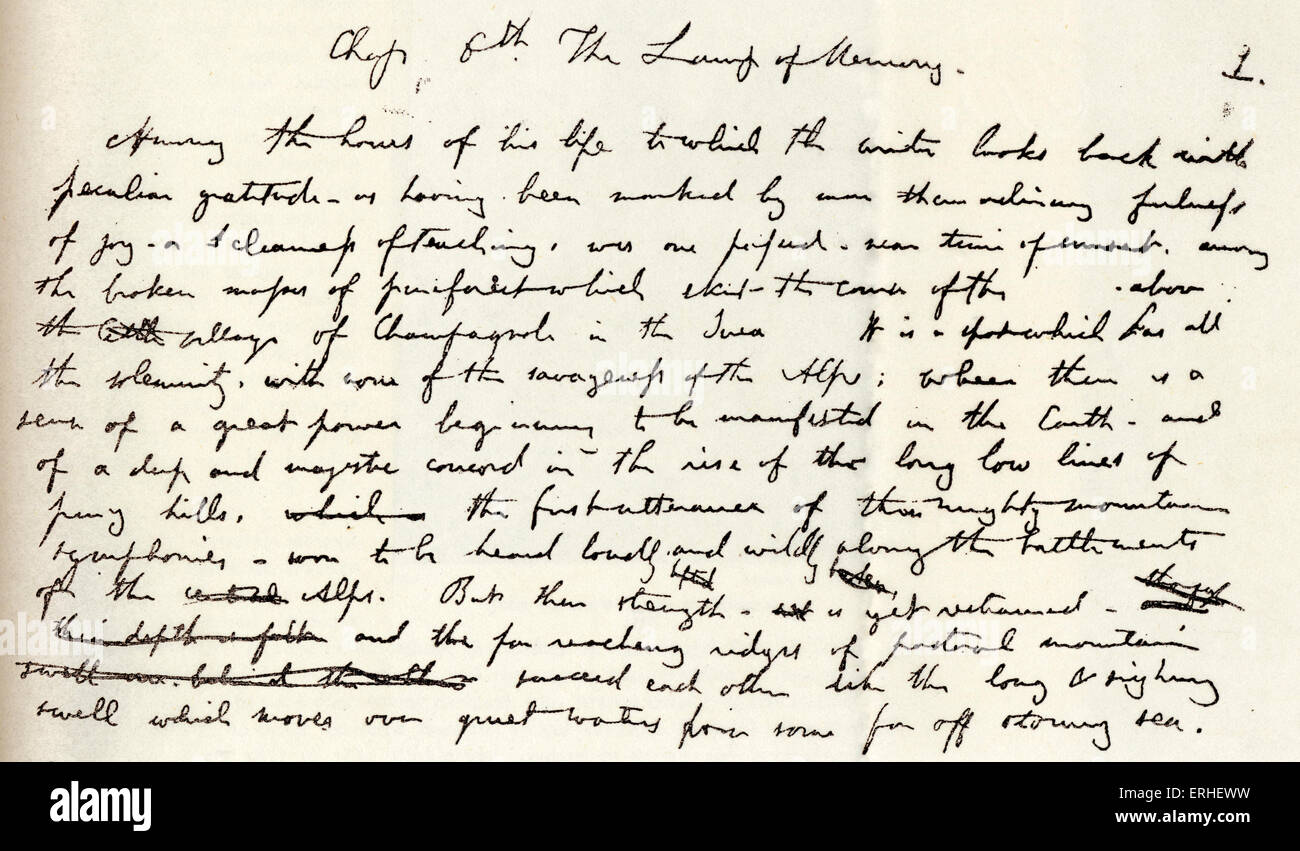 Chap 6th. The Lamp of Memory. 1.
Among the hours of his life to which the writer looks back with
peculiar gratitude - as having been marked by more than ordinary fulness
of joy - or clearness of teaching, was one passed - near time of sunset, among
the broken masses of pine forest which skirt the course of the above
the village of Champagnole in the Jura It is a spot which has all
the solemnity, with none of the savageness of the Alps; where there is a
sense of a great power beginning to be manifested in the Earth - and
of a deep and majestic concord in the rise of the long low lines of
piny hills, which the first utterance of those mighty mountain
symphonies - soon to be heard loudly and wildly along the battlements
of the central Alps. But their strength - is yet restrained -
the depth and the far reaching ridges of pastoral mountain
swell behind the succeed each other like the long & sighing
swell which moves over quiet waters from some far off stormy sea.
alamy
alamy stock photo
ERHEWW
www.alamy.com